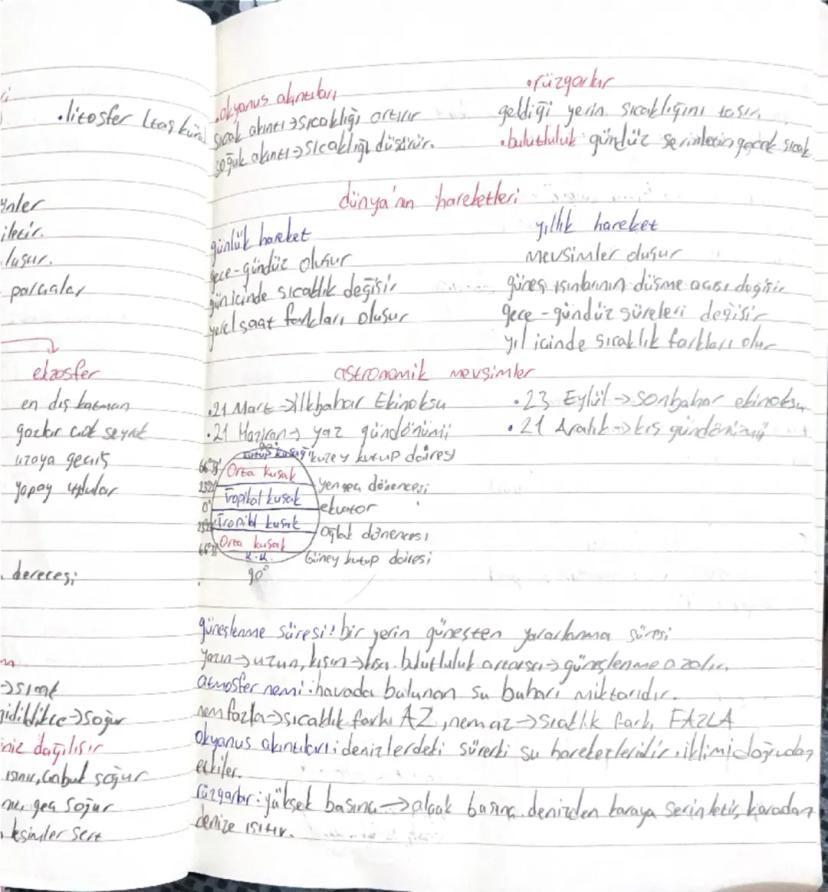 .litosfer (taş küre
ynler
iletir.
luşur.
parçalar
ekzosfer
en dış katman
gazlar çok seyrek
uzaya geçiş
yapay uydular
derecesi
→sıcak
gidildikçe→soğur
dağılışır
ısınır, çabuk soğur
geç soğur
kesimler sert
.okyanus akıntıları
sıcak akıntı→sıcaklığı artırır
soğuk akıntı→sıcaklığı düşürür.
.rüzgarlar
geldiği yerin sıcaklığını taşır
.bulutluluk gündüz serinletir gece sıcak
dünya'nın hareketleri
günlük hareket
gece-gündüz oluşur
gün içinde sıcaklık değişir
yerel saat farkları oluşur
yıllık hareket
mevsimler oluşur
güneş ışınlarının düşme açısı değişir
gece-gündüz süreleri değişir
yıl içinde sıcaklık farkları olur
astronomik mevsimler
.21 Mart→ilkbahar Ekinoksu
.21 Haziran→yaz gündönümü
.23 Eylül→sonbahar ekinoksu
.21 Aralık→kış gündönümü
kutup kuşağı kuzey kutup dairesi
Orta kuşak
yengeç dönencesi
Tropikal kuşak
0° ekvator
Tropikal kuşak
Oğlak dönencesi
Orta kuşak
K.K. Güney kutup dairesi
90°
güneşlenme süresi: bir yerin güneşten yararlanma süresi
yazın→uzun, kışın→kısa. bulutluluk artarsa→güneşlenme azalır.
atmosfer nemi: havada bulunan su buharı miktarıdır.
nem fazla→sıcaklık farkı AZ, nem az→sıcaklık farkı FAZLA
okyanus akıntıları: denizlerdeki sürekli su hareketleridir. iklimi doğrudan
etkiler.
rüzgarlar: yüksek basınç→alçak basınç denizden karaya serinletir, karadan
denize ısıtır.